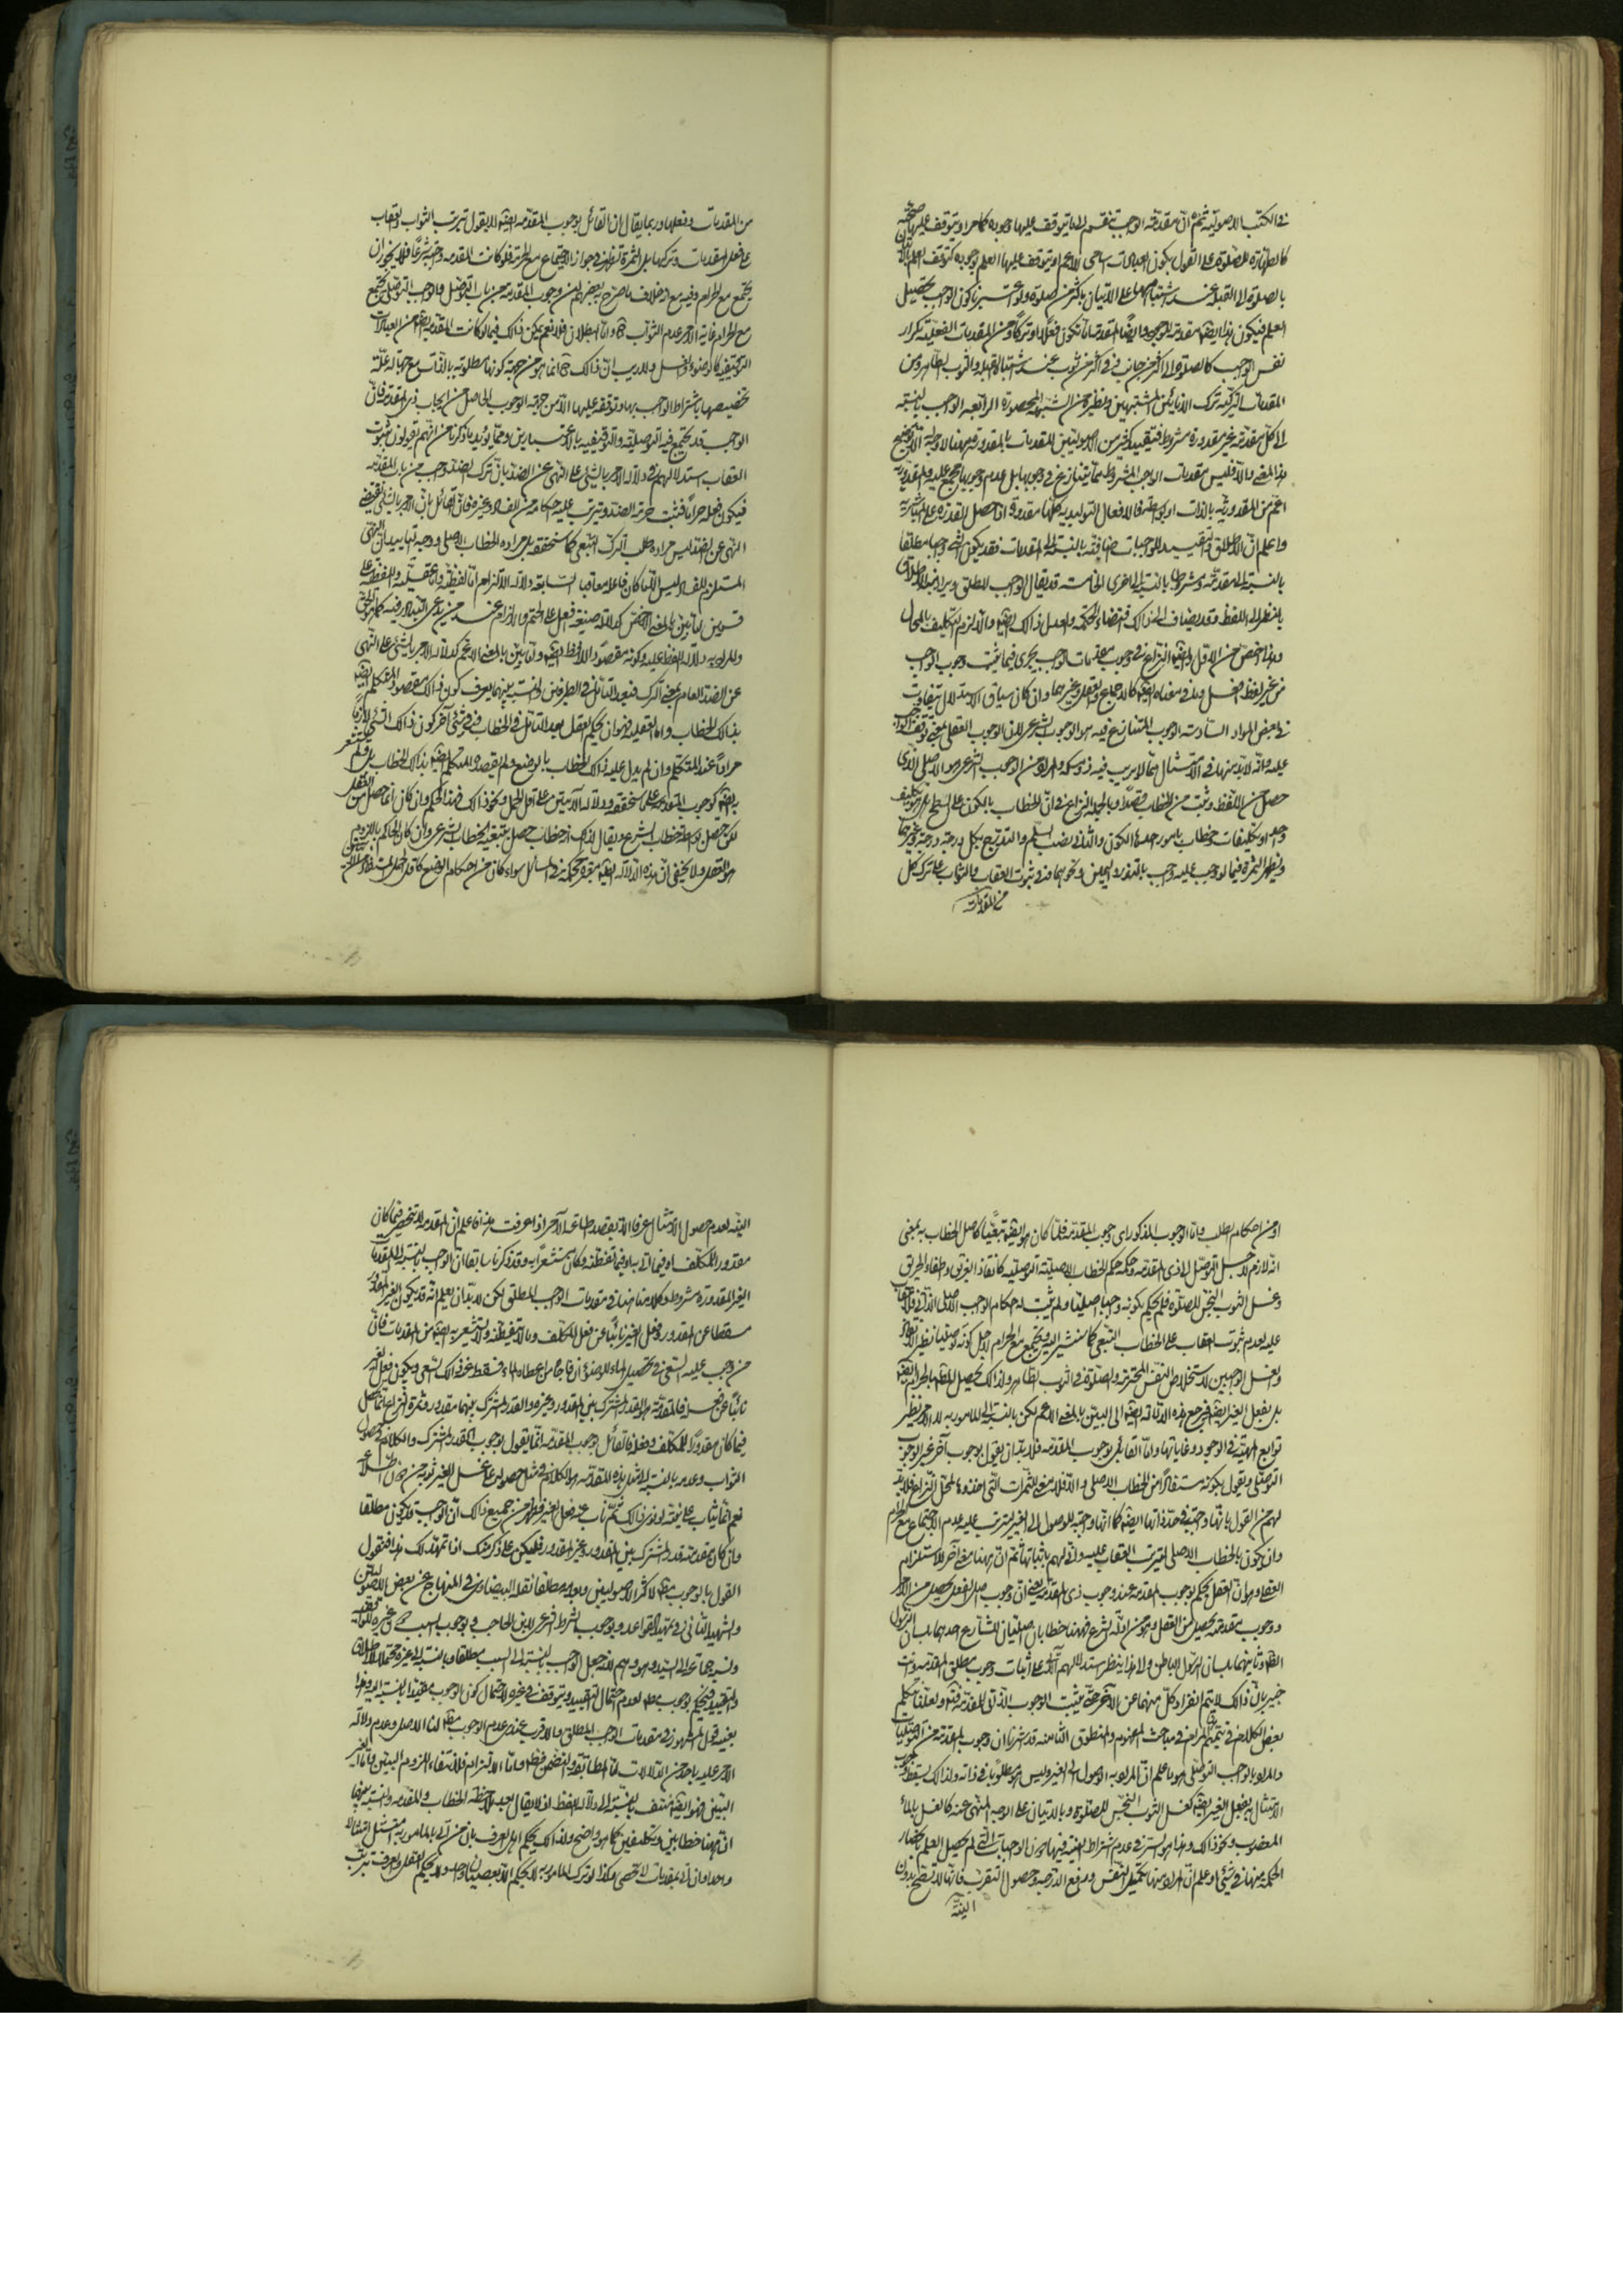 في الكتب الاصولية ثم ان مقدمة الواجب تنقسم الى ما يتوقف عليها وجوده كما مر او يتوقف عليها صحته
كالطهارة للصلوة على القول بكون العبادات اسامي للاعم او يتوقف عليها العلم بوجوده كتوقف العلم
بالصلوة الى القبلة عند اشتباهها على الاتيان باكثر من صلوة
العلم فيكون هذا ايضا مقدمة للوجود وايضا المقدمة اما تكون فعلا او تركا ومن المقدمات الفعلية تكرار
نفس الواجب كالصلوة الى اكثر من جانب وفي اكثر من ثوب عند اشتباه القبلة والثوب الطاهر ومن
المقدمات التركية ترك الانائين المشتبهين ونظيره من الشبهة المحصورة الواجب بالنسبة
الى كل مقدمة غير مقدورة مشروط فتقييد كثير من الاصوليين المقدمات بالمقدورة
هذا المعنى والا فليس مقدمات الواجب المشروط مما يتنازع في وجوبها بل عدم وجوبها مجمع عليه والمقدورية
اعم من المقدورية بالذات او بالواسطة فالافعال التوليدية كلها مقدورة اذا حصل القدرة على المباشرة
واعلم ان الاطلاق والتقييد للواجبات اضافية بالنسبة الى المقدمات فقد يكون الشيء واجبا مطلقا
بالنسبة الى مقدمة ومشروطا بالنسبة الى اخرى الخامسة قد يقال الواجب المطلق ويراد به الاطلاق
بالنظر الى اللفظ وقد يضاف الى ذلك اقتضاء الحكمة والعدل ذلك ايضا والا لزم التكليف بالمحال
وهذا اخص من الاول وايضا النزاع في وجوب مقدمات الواجب يجري فيما يثبت وجوب الواجب
من غير لفظ افعل وما في معناه ايضا كالاجماع والعقل وغيرهما وان كان سياق الاستدلال بتفاوت
في بعض المواد السادسة الوجوب المتنازع فيه هو الوجوب الشرعي لان الوجوب العقلي بمعنى توقف الواجب
عليه وانه لابد منها في الامتثال مما لا يريب فيه ذو مسكة والمراد من الوجوب الشرعي هو الاصلي الذي
حصل من اللفظ وثبت من الخطاب قصدا وبالجملة النزاع في ان الخطاب بالكون على السطح هل هو تكليف
واحد او تكليفات وخطاب بامور احدها الكون والثاني نصب السلم والتدرج بكل درجة درجة وغيرهما
ويظهر الثمرة فيما لو وجب عليه واجب بالنذر واليمين ونحوهما وفي ثبوت العقاب والثواب على ترك كل
من المقدمات
من المقدمات وفعلها وربما يقال ان القائل بوجوب المقدمة ايضا لا يقول بترتب الثواب والعقاب
على فعل المقدمات وتركها بل الثمرة تظهر في جواز الاجتماع مع الحرمة فلو كانت المقدمة واجبة شرعا فلا يجوز ان
يجتمع مع الحرام وفيه مع انه خلاف ما صرح به بعضهم ان وجوب المقدمة من باب التوصل والواجب التوصلي يجتمع
مع الحرام غاية الامر عدم الثواب واما البطلان فلا نعم يمكن ذلك فيما لو كانت المقدمة ايضا من العبادات
التوقيفية كالوضوء والغسل ولا ريب ان ذلك انما هو من جهة كونها مطلوبة بالذات
تخصيصها باشتراط الواجب بها وتوقفه عليها لا من جهة الوجوب الحاصل من ايجاب ذي المقدمة فان
الواجب قد يجتمع فيه التوصلية والتوقيفية بالاعتبارين ومما يؤيد ما ذكرنا من انهم يقولون بثبوت
العقاب استدلالهم في دلالة الامر بالشيء على النهي عن الضد بان ترك الضد واجب من باب المقدمة
فيكون فعله حراما فثبت حرمة الضد ويترتب عليه احكامه من الفساد وغيره فان القائل بان الامر بالشيء يقتضي
النهي عن الضد ليس مراده طلب الترك التبعي كما سنحققه بل مراده الخطاب الاصلي
المستلزم للفساد ليس الا ما كان فاعله معاقبا السابعة دلالة الالتزام اما لفظية واما عقلية واللفظية على
قسمين اما بين بالمعنى الاخص كدلالة صيغة افعل على الحتم والالزام عند من يدعي التبادر فيه كما هو الحق
والمراد به دلالة اللفظ عليه وكونه مقصودا للافظ ايضا واما بين بالمعنى الاعم كدلالة الامر بالشيء على النهي
عن الضد العام بمعنى الترك فبعد التأمل في الطرفين والنسبة بينهما يعرف كون ذلك مقصود المتكلم ايضا
بذلك الخطاب واما العقلية فهو ان يحكم العقل بعد التأمل في الخطاب وفي شيء آخر كون ذلك الشيء لازما
مرادا عند المتكلم وان لم يدل عليه ذلك الخطاب بالوضع ولم يقصده المتكلم ايضا بذلك الخطاب بل ولم يستشعر
به ايضا كوجوب المقدمة على ما سنحققه ودلالة الآيتين على اقل الحمل ونحو ذلك فهذا الحكم وان كان انما حصل من العقل
لكن حصل بواسطة خطاب الشرع ويقال لذلك انه خطاب حصل بتبعية الخطاب الشرعي وان كان الحاكم باللزوم
هو العقل ولا يخفى ان هذه الدلالة ايضا معتبرة محكمة في المسائل سواء كان من احكام الوضع كاقل الحمل المستفاد من الآيتين
او من احكام الطلب واما الوجوب المذكور اي وجوب المقدمة فلما كان هو ايضا تبعيا كاصل الخطاب به بمعنى
انه لازم لاجل التوصل الى ذي المقدمة وحكمه حكم الخطاب الاصلية التوصلية كانقاذ الغريق واطفاء الحريق
وغسل الثوب النجس للصلوة فلم يحكم بكونه واجبا اصليا ولم يثبت له احكام الواجب الاصلي الذاتي فلا عقاب
عليه لعدم ثبوت العقاب على الخطاب التبعي كما سنشير اليه ويجتمع مع الحرام لاجل كونه توصليا نظير الانقاذ
والغسل الواجبين لاستخلاص النفس المحترمة والصلوة في الثوب الطاهر ولذلك يحصل المطلوب بالحرام ايضا
بل بفعل الغير ايضا فمرجع هذه الدلالة ايضا الى البين بالمعنى الاعم لكن بالنسبة الى المأمور به لا الامر نظير
توابع المهية في الوجود وغاياتها واما القائل بوجوب المقدمة فلا بد ان يقول بوجوب آخر غير الوجوب
التوصلي ويقول بكونه مستفادا من الخطاب الاصلي والا فلا معنى للثمرات التي اخذوها لمحل النزاع فلا بد
لهم من القول بانها واجبة في حد ذاتها ايضا كما انها واجبة للوصول الى الغير ليترتب عليه عدم الاجتماع مع الحرام
وان يكون بالخطاب الاصلي ليترتب العقاب عليه وانى لهم باثباتها ثم ان هيهنا معنى آخر للاستلزام
العقلي وهو ان العقل يحكم بوجوب المقدمة عند وجوب ذي المقدمة يعني ان وجوب اصل الفعل يحصل من الامر
ووجوب مقدمته يحصل من العقل وهو من ادلة الشرع فهيهنا خطابان اصليان للشارع احدهما بلسان الرسول
الظاهر وثانيهما بلسان الرسول الباطن والى هذا ينظر استدلالهم الآتي على اثبات وجوب مطلق المقدمة وانت
خبير بان ذلك لا يتم انفراد كل منهما عن الآخر حتى يثبت الوجوب الذاتي للمقدمة فيه ولعلنا نتكلم
بعض الكلام في تتميم المرام في مباحث المفهوم والمنطوق الثامنة قد اشرنا ان وجوب المقدمة من التوصليات
والمراد بالواجب التوصلي هو ما علم ان المراد به الوصول الى الغير وليس هو مطلوبا في ذاته ولذلك يسقط وجوب
الامتثال به بفعل الغير ايضا كغسل الثوب النجس للصلوة وبالاتيان على الوجه المنهي عنه كالغسل بالماء
المغصوب ونحو ذلك وهذا هو السر في عدم اشتراط النية فيها دون الواجبات التي لم يحصل العلم بانحصار
الحكمة منها في شيء او علم ان المراد منها تكميل النفس ورفع الدرجة وحصول التقرب فانها لا تصح بدون
النية
النية لعدم حصول الامتثال عرفا الا بقصد اطاعة الآمر اذا عرفت هذا فاعلم ان المقدمة لا تنحصر فيما كان
مقدورا للمكلف او فيما اتى به او فيما تفطنه وكان مستشعرا به وقد ذكرنا سابقا ان الواجب بالنسبة الى المقدمات
الغير المقدورة مشروط وكلامنا هنا في مقدمات الواجب المطلق لكن لابد ان يعلم انه قد يكون الغير المقدور
مسقطا عن المقدور وفعل الغير نائبا عن فعل المكلف وما لا يتفطنه ولا يستشعر به ايضا من المقدمات فان
من وجب عليه السعي في تحصيل الماء للوضوء ان فاجأه من اعطاه الماء فسقط عنه ذلك السعي ويكون فعل الغير
نائبا عن فعله فالمقدمة هو القدر المشترك بين المقدور وغيره والقدر المشترك بينهما مقدور وثمرة النزاع انما تحصل
فيما كان مقدورا للمكلف وفعله فالقائل بوجوب المقدمة انما يقول بوجوب القدر المشترك والكلام في حصول
الثواب وعدمه بالنسبة الى مثل هذه المقدمة هو الكلام في مثل حصوله على غسل الغير ثوبه من دون اطلاعه
نعم انما يثاب على نيته لو نوى ذلك ثم ناب عنه فعل الغير فظهر من جميع ذلك ان الواجب قد يكون مطلقا
وان كان مقدمته قدر المشترك بين المقدور وغير المقدور فليكن على ذكر منك اذا تمهد لك هذا فنقول
القول بالوجوب مطلقا لاكثر الاصوليين وعدمه مطلقا نقله البيضاوي في المنهاج عن بعض الاصوليين
والشهيد الثاني في تمهيد القواعد ووجوب الشرط الشرعي لابن الحاجب ووجوب السبب دون غيره للواقفية
ونسبه جماعة الى السيد وهو وهم لانه جعل الواجب بالنسبة الى السبب مطلقا وبالنسبة الى غيره محتملا للاطلاق
والتقييد فيحكم بوجوبه مطلقا لعدم احتمال التقييد ويتوقف في غيره لاحتمال كون الوجوب مقيدا بالنسبة اليه وهذا
بعينه قول المشهور في مقدمات الواجب المطلق والاقرب عندي عدم الوجوب مطلقا لنا الاصل وعدم دلالة
الامر عليه باحدى الدلالات اما المطابقة والتضمن فظاهر واما الالتزام فلانتفاء اللزوم البين واما الغير
البين فهو ايضا منتف بالنسبة الى دلالة اللفظ اذ لا يقال بعد ملاحظة الخطاب والمقدمة والنسبة بينهما
ان هيهنا خطابين وتكليفين كما هو واضح ولذلك يحكم اهل العرف بان من اتى بالمأمور به امتثل امتثالا
واحدا وان اتى بمقدمات لا تحصى وكذا لو ترك المأمور به لا يحكم الا بعصيان واحد ولا يحكم العقل والعرف بترتب